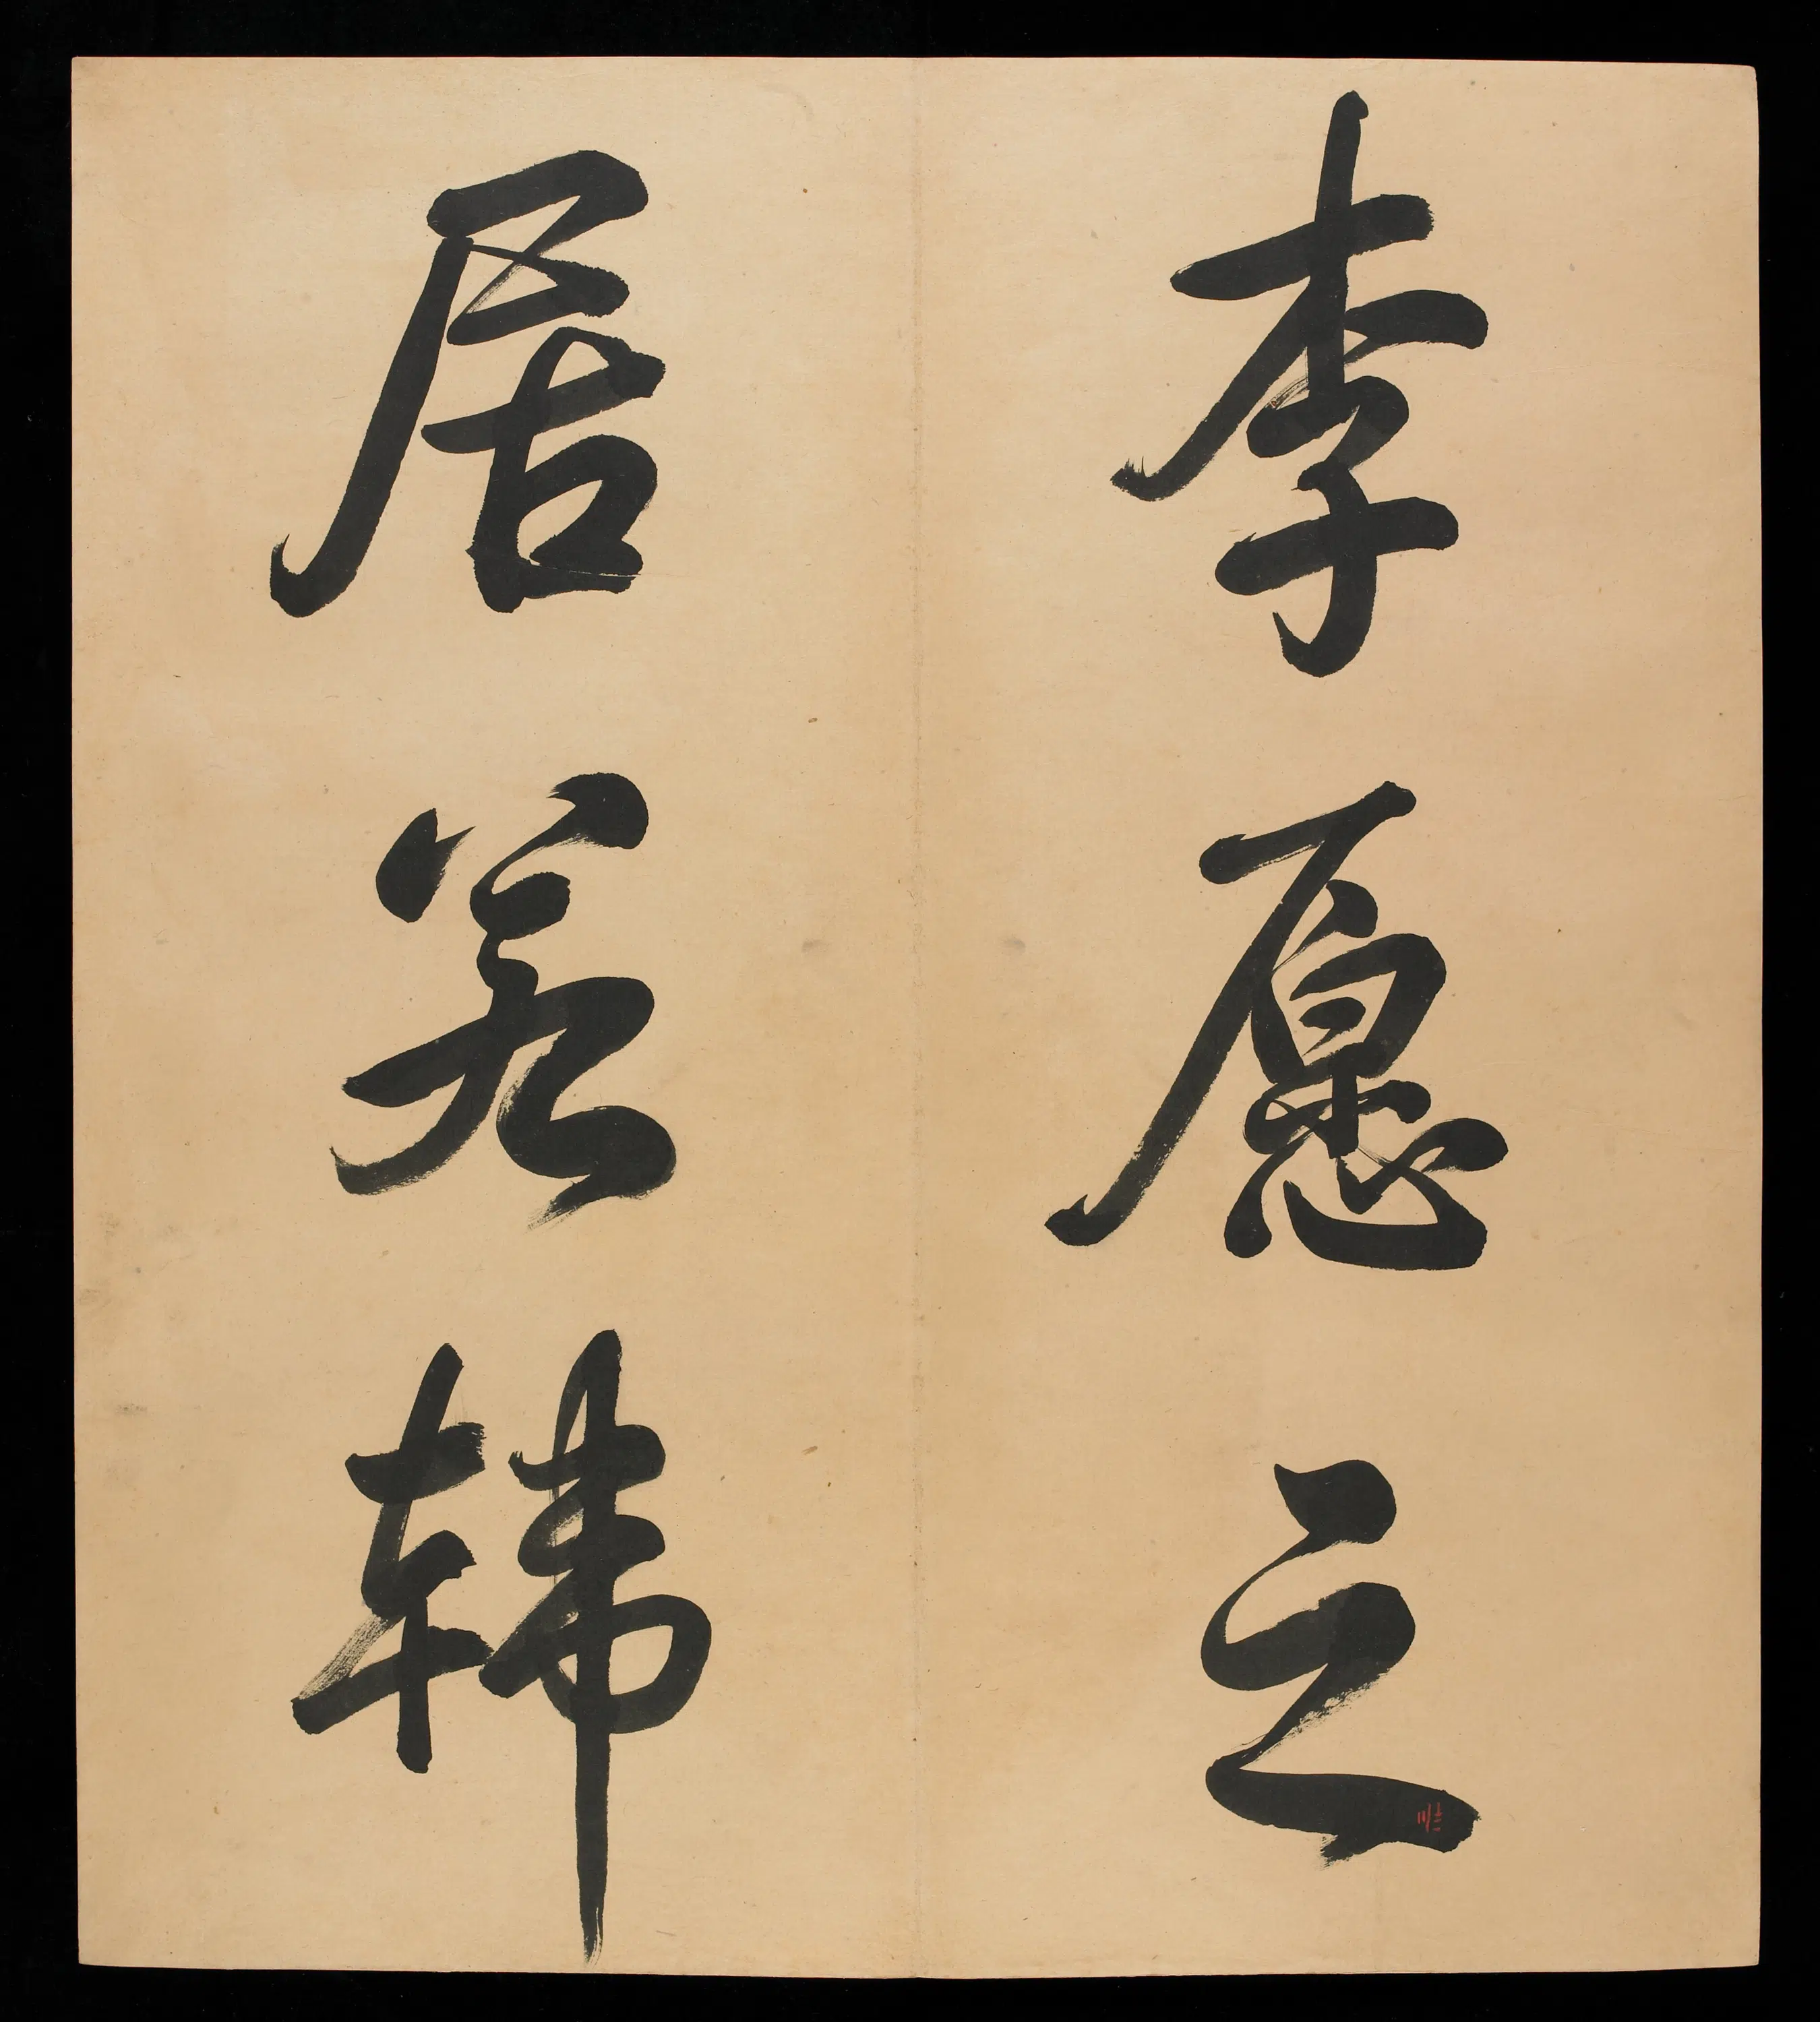 李愿之
居若韩